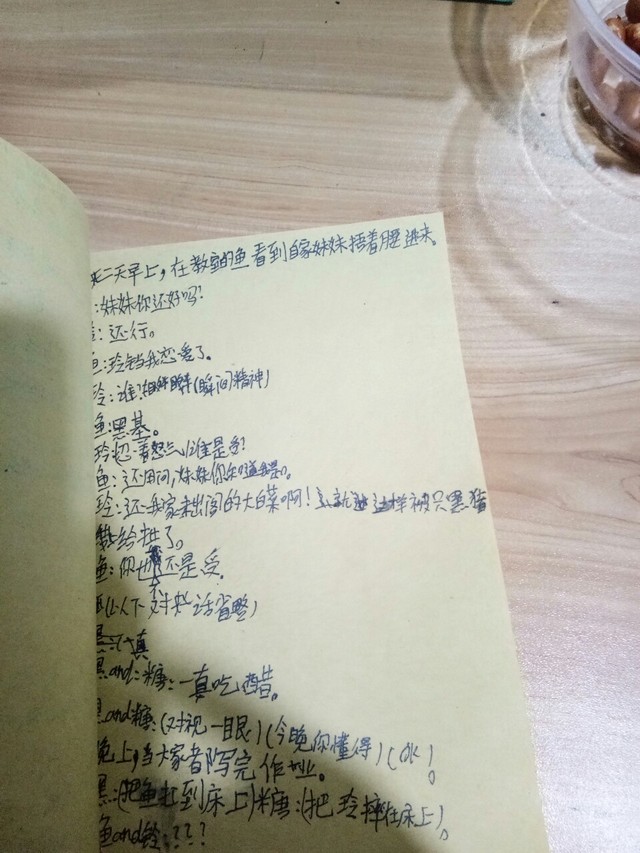 二天早上,在教室的鱼看到自家妹妹捂着腰进来。
:妹妹你还好吗?
:还行。
鱼:玲铛我恋爱了。
玲:谁?(瞬间精神)
鱼:黑基。
玲:怒气谁是受?
鱼:还用问,妹妹你知道我是。
玲:还我家未出阁的大白菜啊!就这样被只黑猪
给拱了。
鱼:你不还是受
(以下对 话省略)
真
黑and糖:一真吃醋。
黑and糖:(对视一眼)(今晚你懂得)(OK)。
晚上,当大家都写完作业。
黑:(把鱼扛到床上)糖:(把玲摔在床上)。
鱼and铃:???